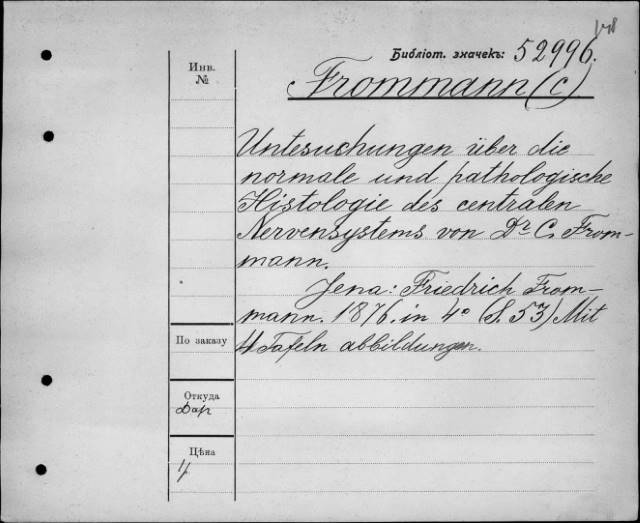 Библіот. значекъ: 52996.
Инв.
№
Frommann (C)
Untesuchungen über die
normale und pathologische
Histologie des centralen
Nervensystems von Dr C. From-
mann.
Jena: Friedrich From-
mann. 1876. in 4o (S. 53) Mit
4 Tafeln abbildungen.
По заказу
Откуда
Дар
Цѣна